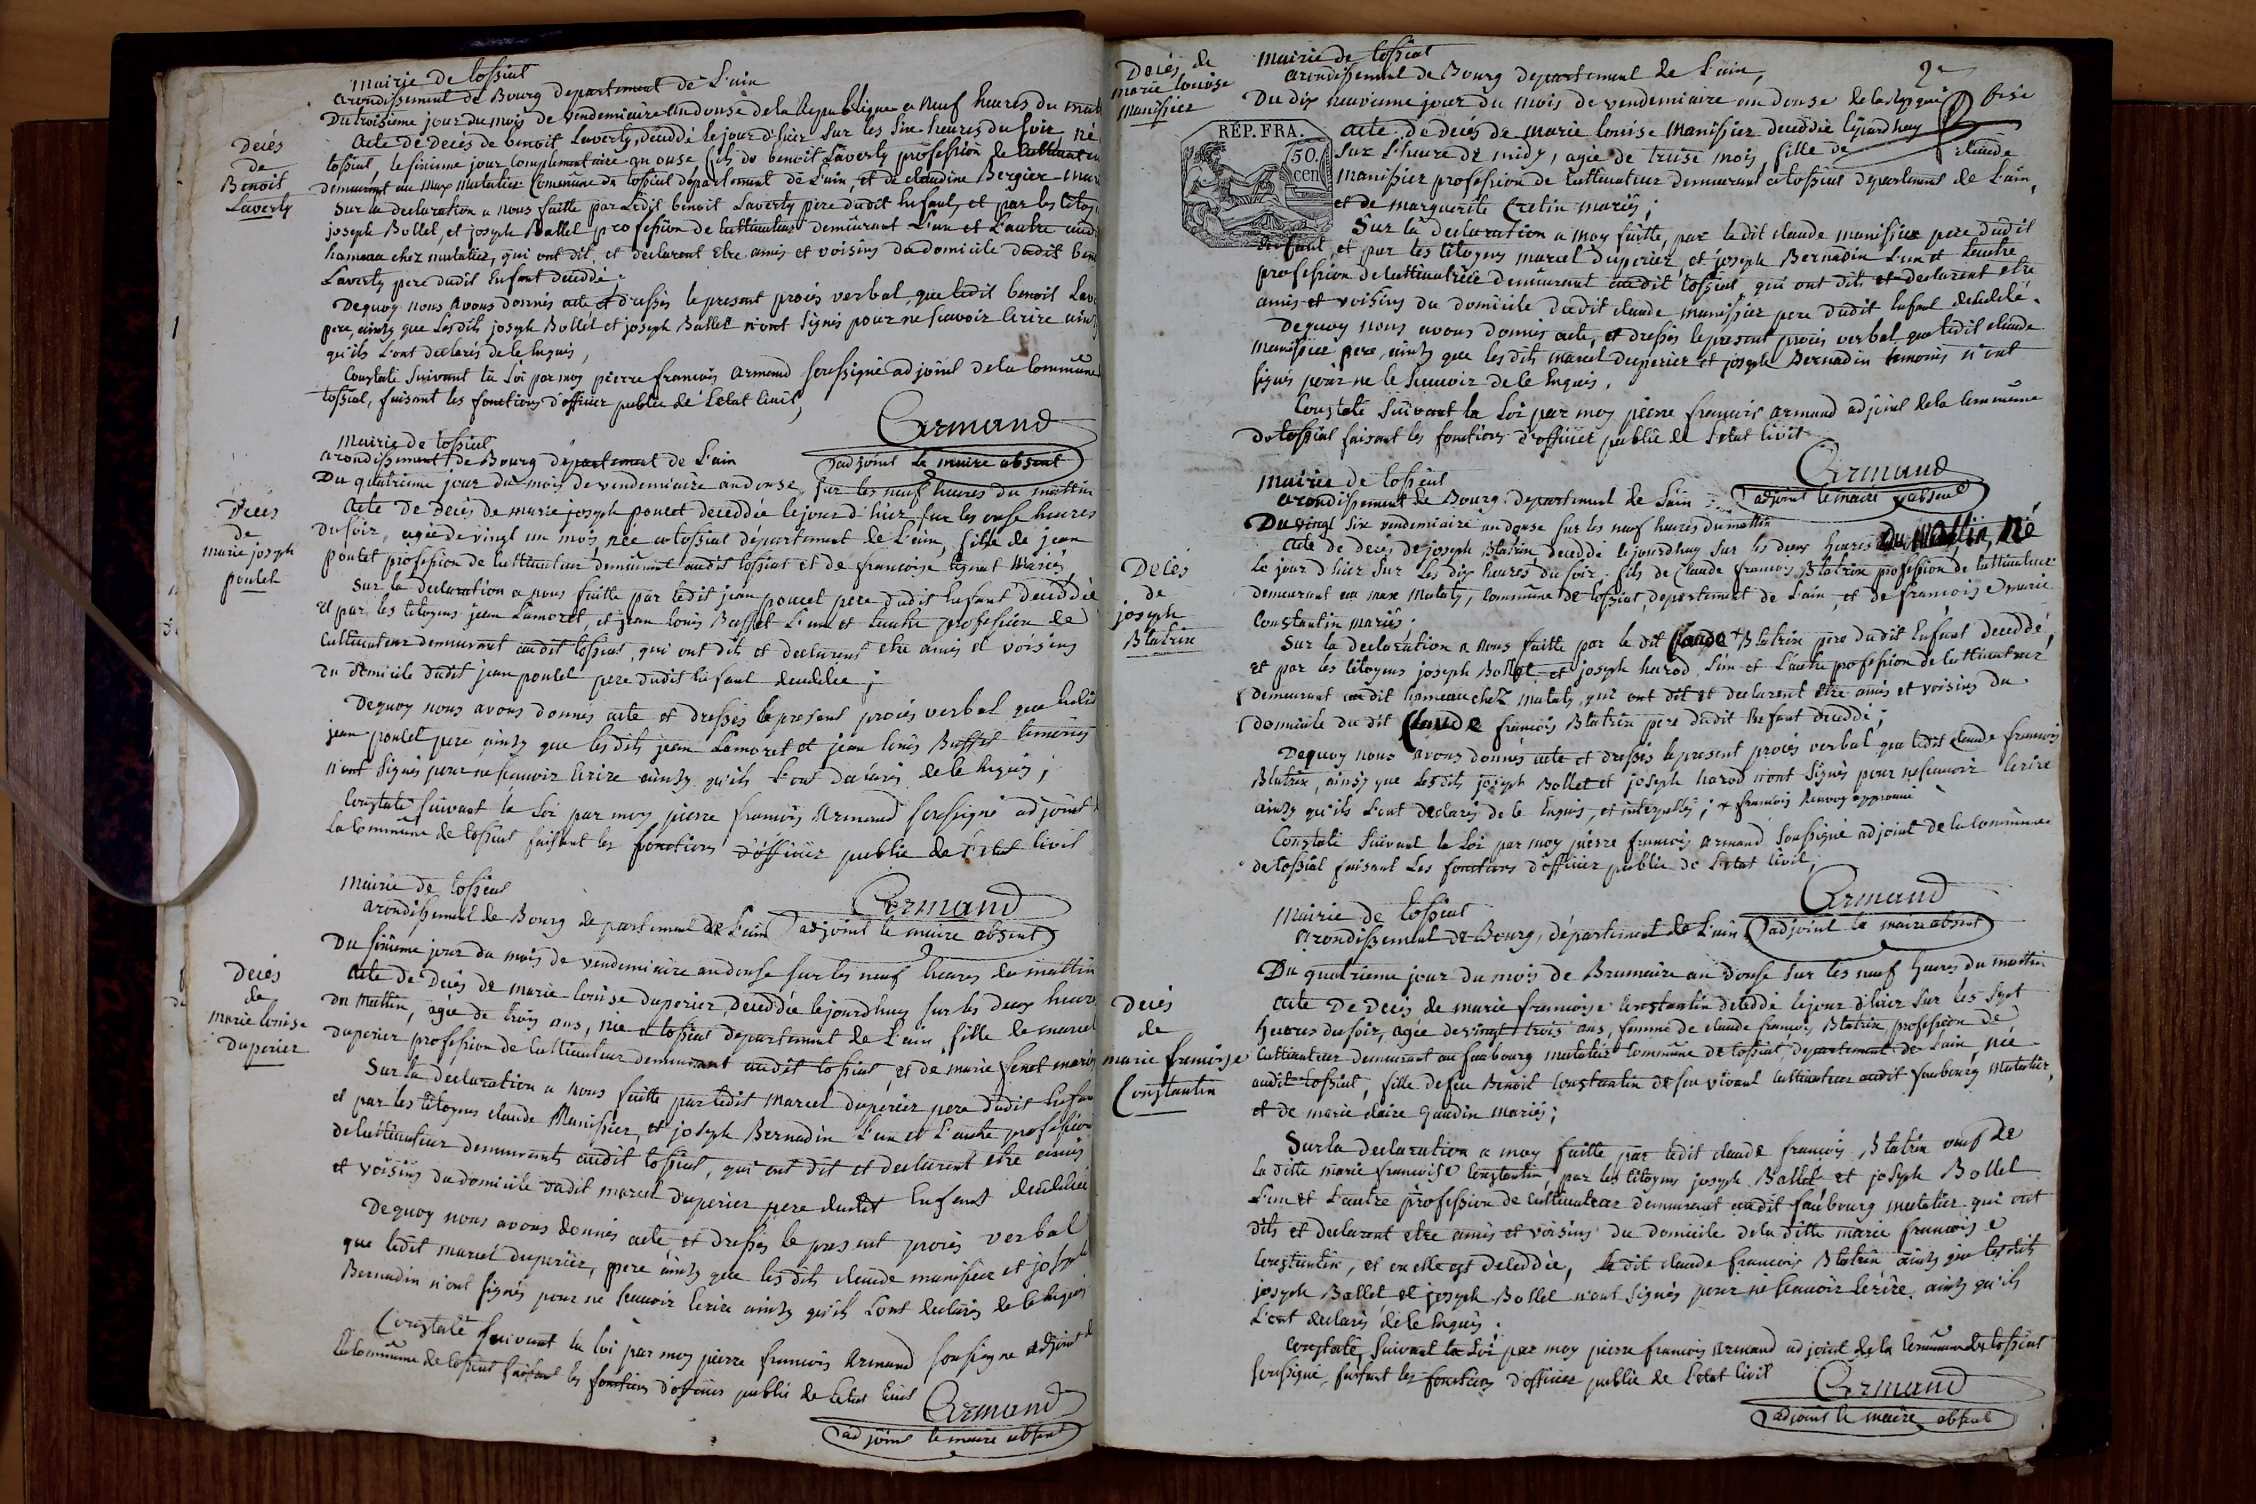 Mairie de tossiat
arondissement de Bourg departement de L'ain
Du troisieme jour du mois de vendemiaire an douse de la Republique a neuf heures du mat
Decés
de
Benoit
Laverty
Acte de decés de benoit Laverty, décédé le jour d'hier sur les six heures du soir né
tossiat, le sixieme jour complementaire an onse fils de benoit Laverty profession de cultivateur
demeurant au max mutatier commune de tossiat département de L'ain, et de claudine Bergier mar
Sur la declaration a nous faitte par Ledit benoit Laverty pere dudit enfant, et par les citoy
joseph Bollet, et joseph Ballet profession de cultivateur demeurant L'un et L'autre audi
hameau chez mutatier, qui ont dit et declarent etre amis et voisins du domicile dudit ben
Laverty pere dudit Enfant decédé;
Dequoy nous Avons donnés acte et dressés le present procés verbal, que ledit benoit Lav
pere, ainsy que Lesdits joseph Bollet et joseph Ballet n'ont signés pour ne scavoir Ecrire ainsy
qu'ils L'ont declarés de ce Enquis,
Constaté suivant La Loi par moy pierre francois armand soussigné adjoint de la commune
tossiat, faisant les fonctions d'officier public de L'etat civil,
Armand
adjoint le maire absent
Mairie de tossiat
arondissement de Bourg département de L'ain
Du quatrieme jour du mois de vendemiaire an douse, sur les neuf heures du mattin
Decés
de
marie joseph
poulet
Acte de decés de marie joseph poncet decédée le jour d'hier sur les onse heures
du soir, agée de vingt un mois, née a tossiat département de L'ain, fille de jean
poulet profession de cultivateur demeurant audit tossiat et de francoise tignat Mariés,
Sur la declaration a nous faitte par ledit jean poncet pere dudit Enfant decédée
et par les citoyens jean Lamoret, et jean louis Buffet L'un et L'autre profession de
cultivateur demeurant audit tossiat, qui ont dits et declarent etre amis et voisins
du domicile dudit jean poulet pere dudit Enfant decédée;
Dequoy nous avons donnés acte et dressés le present procés verbal que ledit
jean poulet pere ainsy que les dits jean Lamoret et jean louis Buffet temoins
n'ont signés pour ne scavoir Ecrire ainsy qu'ils L'ont declarés de ce Enquis;
Constaté suivant la Loi par moy pierre francois Armand soussigné adjoint
La commune de tossiat faisant les fonctions d'officier public de L'etat civil
Armand
adjoint le maire absent
Mairie de tossiat
arondissement de Bourg departement de L'ain
Du sixieme jour du mois de vendemiaire an douse sur les neuf heures du mattin
Decés
de
marie louise
Duperier
Acte de Decés de marie louise duperier, Decedée le jourd'huy sur les deux heures
du Mattin, agée de trois ans, née a tossiat departement de L'ain fille de marcel
duperier profession de cultivateur demeurant audit tossiat, et de marie fenet mariés
Sur la declaration a nous faitte par ledit Marcel duperier pere dudit Enfant
et par les citoyens claude Manissier, et joseph Bernadin L'un et L'autre profession
de cultivateur demeurants audit tossiat, qui ont dit et declarent etre amis
et voisins du domicile dudit marcel duperier pere dudit Enfant decédée
Dequoy nous avons donnés acte et dressés le present procés verbal
que ledit marcel duperier, pere ainsy que les dits claude manissier et joseph
Bernadin n'ont signés pour ne scavoir Ecrire ainsy qu'ils L'ont declarés de ce Enquis
Constaté suivant la loi par moy pierre francois Armand soussigné adjoint de
la commune de tossiat faisant les fonctions d'officier public de L'etat civil
Armand
adjoint le maire absent
2e
Decés de
marie louise
manissier
Mairie de tossiat
arondissement de Bourg departement de L'ain,
Du dix neuvieme jour du mois de vendemiaire an douse de la
REP. FRA.
50.
cen
acte de decés de marie louise Manissier decédée lejourdhuy
sur L'heure de midy, agée de treise mois, fille de claude
manissier profession de cultivateur demeurant a tossiat departement de L'ain,
et de marguerite Cretin mariés;
Sur la declaration a moy faitte, par le dit claude manissier pere dudit
Enfant, et par les citoyens marcel duperier, et joseph Bernadin L'un et L'autre
profession de cultivateur demeurant audit tossiat qui ont dits et declarent etre
amis et voisins du domicile dudit claude manissier pere dudit Enfant decédé.
Dequoy nous avons donnés acte, et dressés le present procés verbal que ledit claude
manissier pere, ainsy que les dits marcel duperier et joseph Bernadin temoins n'ont
signés pour ne le scavoir de ce Enquis,
Constaté suivant la Loi par moy pierre francois armand adjoint de la commune
de tossiat faisant les fonctions d'officier public de L'etat civil
Armand
adjoint le maire absent
Mairie de tossiat
arondissement de Bourg departement de L'ain
Du vingt six vendemiaire an douse sur les neuf heures du mattin
Decés
de
joseph
Blatrix
acte de decés de joseph Blatrix decédé le jourdhuy sur les deux heures du Mattin, né
le jour d'hier sur les dix heures du soir, fils de Claude francois Blatrix profession de cultivateur
demeurant au max Mutaty, commune de tossiat, departement de L'ain, et de francoise marie
Constantin mariés;
Sur la declaration a nous faitte par le dit claude + Blatrix pere dudit Enfant decédé,
et par les citoyens joseph Bollet, et joseph harod L'un et L'autre profession de cultivateur
demeurant audit hameau chez mutaty, qui ont dit et declarent etre amis et voisins du
domicile du dit Claude francois Blatrix pere dudit Enfant decédé;
Dequoy nous avons donnés acte et dressés le present procés verbal que ledit claude francois
Blatrix, ainsy que lesdits joseph Bollet et joseph harod n'ont signés pour ne scavoir Ecrire
ainsy qu'ils L'ont declarés de ce Enquis, et interpellés; + francois Renvoy approuvé
Constaté suivant la Loi par moy pierre francois armand soussigné adjoint de la commune
de tossiat faisant Les fonctions d'officier public de L'etat civil;
Armand
adjoint le maire absent
Mairie de tossiat
arondissement de Bourg, département de L'ain
Du quatrieme jour du mois de Brumaire an douse sur les neuf heures du mattin
Decés
de
marie francoise
Constantin
Acte de Decés de marie francoise Constantin decédé le jour d'hier sur les sept
heures du soir, agée de vingt trois ans, femme de claude francois Blatrix, profession de
cultivateur demeurant au faubourg mutatier commune de tossiat, departement de L'ain, née
audit tossiat, fille de feu Benoit Constantin de son vivant cultivateur audit faubourg Mutatier,
et de marie claire gaudin mariés;
Sur la declaration a moy faitte par ledit claude francois Blatrix veuf de
la ditte marie francoise Constantin, par les citoyens joseph Ballet et joseph Bollet
L'un et L'autre profession de cultivateur demeurant audit faubourg mutatier qui ont
dits et declarent etre amis et voisins du domicile de la ditte marie francoise
Constantin, et ou elle est decédée, Le dit claude francois Blatrix ainsy que lesdits
joseph Ballet et joseph Bollet n'ont signés pour ne scavoir Ecrire, ainsy qu'ils
L'ont declarés de ce Enquis.
Constaté, suivant la Loi par moy pierre francois armand adjoint de la commune de tossiat
soussigné, faisant les fonctions d'officier public de L'etat civil
Armand
adjoint le maire absent